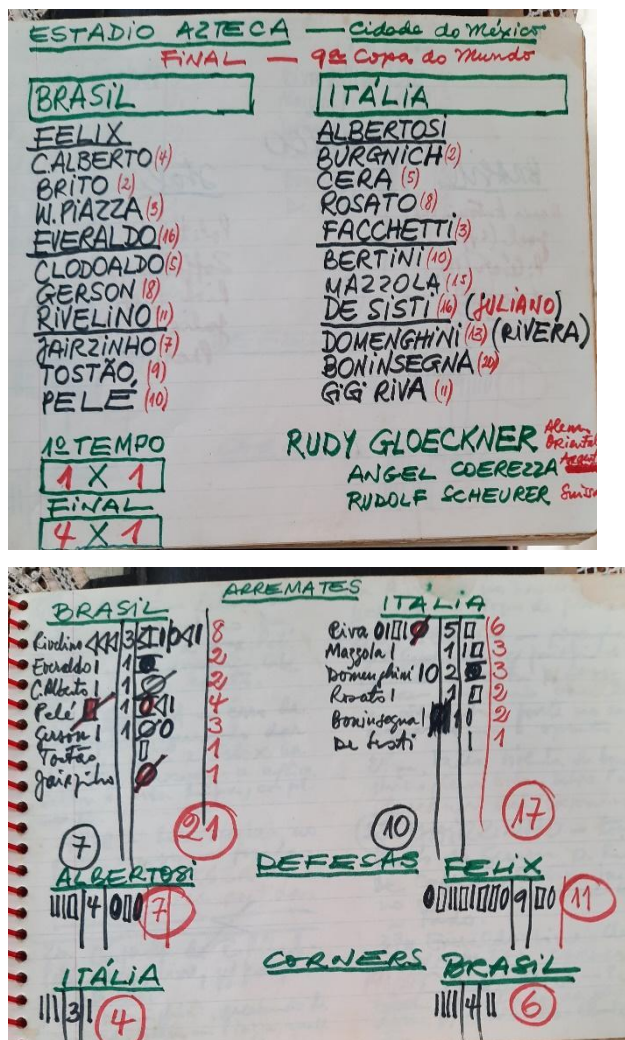 ESTADIO AZTECA — Cidade do México
FINAL — 9ª Copa do Mundo
BRASIL
FELIX
C.ALBERTO (4)
BRITO (2)
W.PIAZZA (3)
EVERALDO (16)
CLODOALDO (5)
GERSON (8)
RIVELINO (11)
JAIRZINHO (7)
TOSTÃO (9)
PELÉ (10)
1º TEMPO
1 X 1
FINAL
4 X 1
ITÁLIA
ALBERTOSI
BURGNICH (2)
CERA (5)
ROSATO (8)
FACCHETTI (3)
BERTINI (10)
MAZZOLA (15)
DE SISTI (16) (JULIANO)
DOMENGHINI (13) (RIVERA)
BONINSEGNA (20)
GIGI RIVA (11)
RUDY GLOECKNER
ANGEL COEREZZA
RUDOLF SCHEURER
ARREMATES
BRASIL
Rivelino 3 8
Everaldo 1 2
C.Alberto 1 2
Pelé 1 4
Gerson 1 3
Tostão 1
Jairzinho 1
7 21
ITALIA
Riva 5 6
Mazzola 1 3
Domenghini 2 3
Rosato 1 2
Boninsegna 1 2
De Sisti 1
10 17
DEFESAS
ALBERTOSI
4 7
FELIX
9 11
CORNERS
ITÁLIA
3 4
BRASIL
4 6